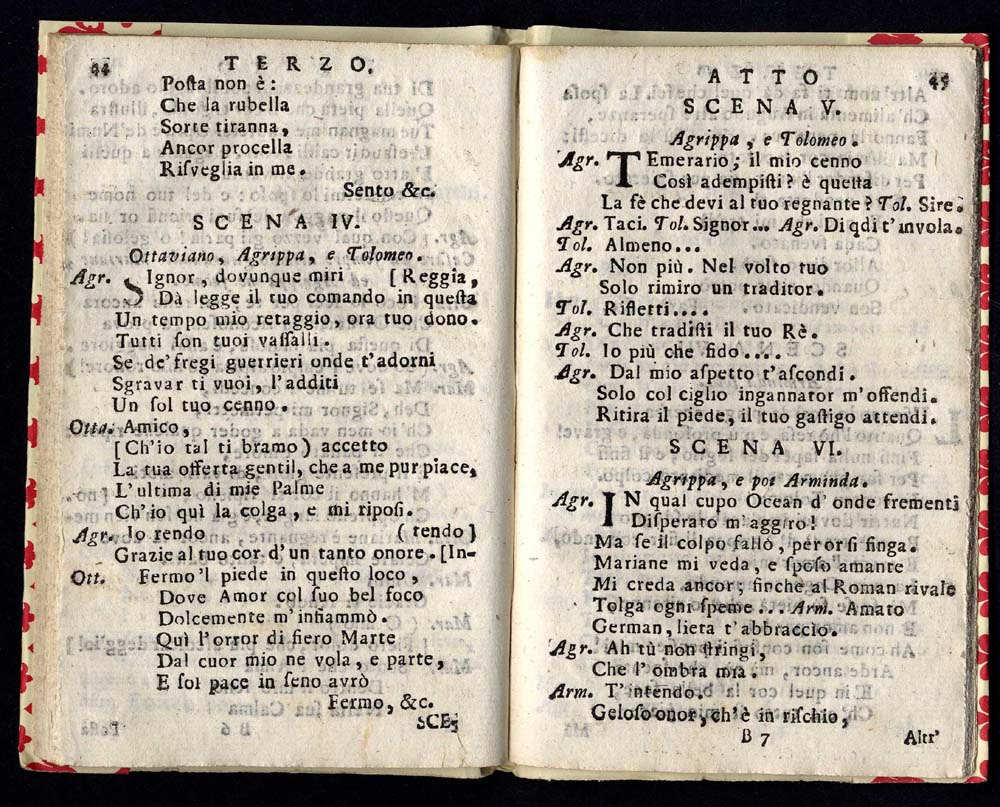 44 TERZO.
Posta non è:
Che la rubella
Sorte tiranna,
Ancor procella
Risveglia in me.
Sento &c.
SCENA IV.
Ottaviano, Agrippa, e Tolomeo.
Agr. SIgnor, dovunque miri [Reggia,
Dà legge il tuo comando in questa
Un tempo mio retaggio, ora tuo dono.
Tutti son tuoi vassalli.
Se de' fregi guerrieri onde t'adorni
Sgravar ti vuoi, l'additi
Un sol tuo cenno.
Otta. Amico,
[Ch'io tal ti bramo) accetto
La tua offerta gentil, che a me pur piace,
L'ultima di mie Palme
Ch'io quì la colga, e mi riposi.
Agr. Io rendo (tendo)
Grazie al tuo cor d'un tanto onore. [In-
Ott. Fermo'l piede in questo loco,
Dove Amor col suo bel foco
Dolcemente m'infiammò.
Quì l'orror di fiero Marte
Dal cuor mio ne vola, e parte,
E sol pace in seno avrò
Fermo, &c.
SCE-
ATTO 45
SCENA V.
Agrippa, e Tolomeo.
Agr. TEmerario; il mio cenno
Così adempisti? è questa
La fè che devi al tuo regnante? Tol. Sire.
Agr. Taci. Tol. Signor... Agr. Di qdi t'invola.
Tol. Almeno...
Agr. Non più. Nel volto tuo
Solo rimiro un traditor.
Tol. Rifletti....
Agr. Che tradisti il tuo Rè.
Tol. Io più che fido....
Agr. Dal mio aspetto t'ascondi.
Solo col ciglio ingannator m'offendi.
Ritira il piede, il tuo gastigo attendi.
SCENA VI.
Agrippa, e poi Arminda.
Agr. IN qual cupo Ocean d'onde frementi
Disperato m'aggiro!
Ma se il colpo fallò, per or si finga.
Mariane mi veda, e sposo amante
Mi creda ancor; finchè al Roman rivale
Tolga ogni speme... Arm. Amato
German, lieta t'abbraccio.
Agr. Ah tù non stringi,
Che l'ombra mia.
Arm. T'intendo.
Geloso onor, ch'è in rischio,
B 7 Altr'